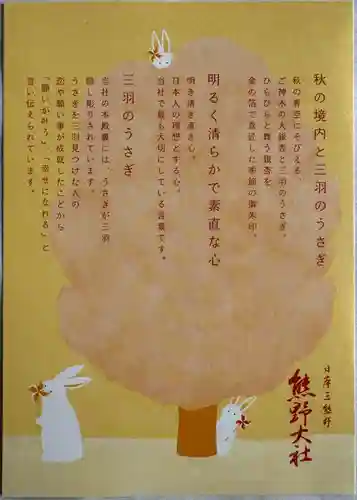 秋の境内と三羽のうさぎ
秋の青空にそびえる、
ご神木の大銀杏と三羽のうさぎ。
ひらひらと舞う銀杏を
金の箔で表現した季節の御朱印。
明るく清らかで素直な心
明き清き直き心。
日本人の理想とする心。
当社で最も大切にしている言葉です。
三羽のうさぎ
当社の本殿裏には、うさぎが三羽
隠し彫りされています。
うさぎを三羽見つけた人の
恋や願い事が成就したことから
「願いが叶う」、「幸せになれる」と
言い伝えられています。
日本三熊野
熊野大社